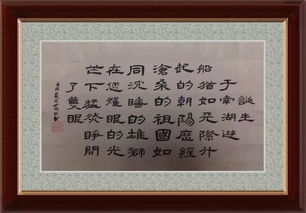 誕生
于南湖遊
船猶如天際升
起的朝陽歷經
滄桑的祖國
同沉睡的雄獅
在您耀眼的光
芒下猛然睜開
了雙眼